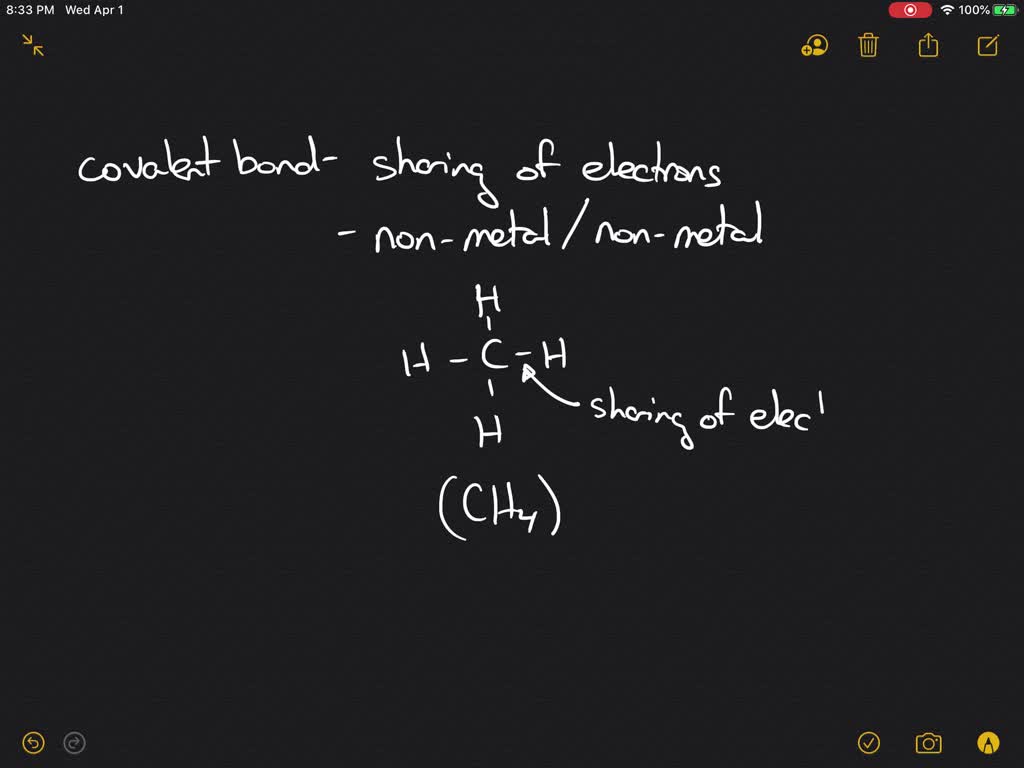 8:33 PM Wed Apr 1 100%
covalent bond- sharing of electrons
- non-metal / non-metal
H
H - C - H
H
sharing of elec
(CH4)